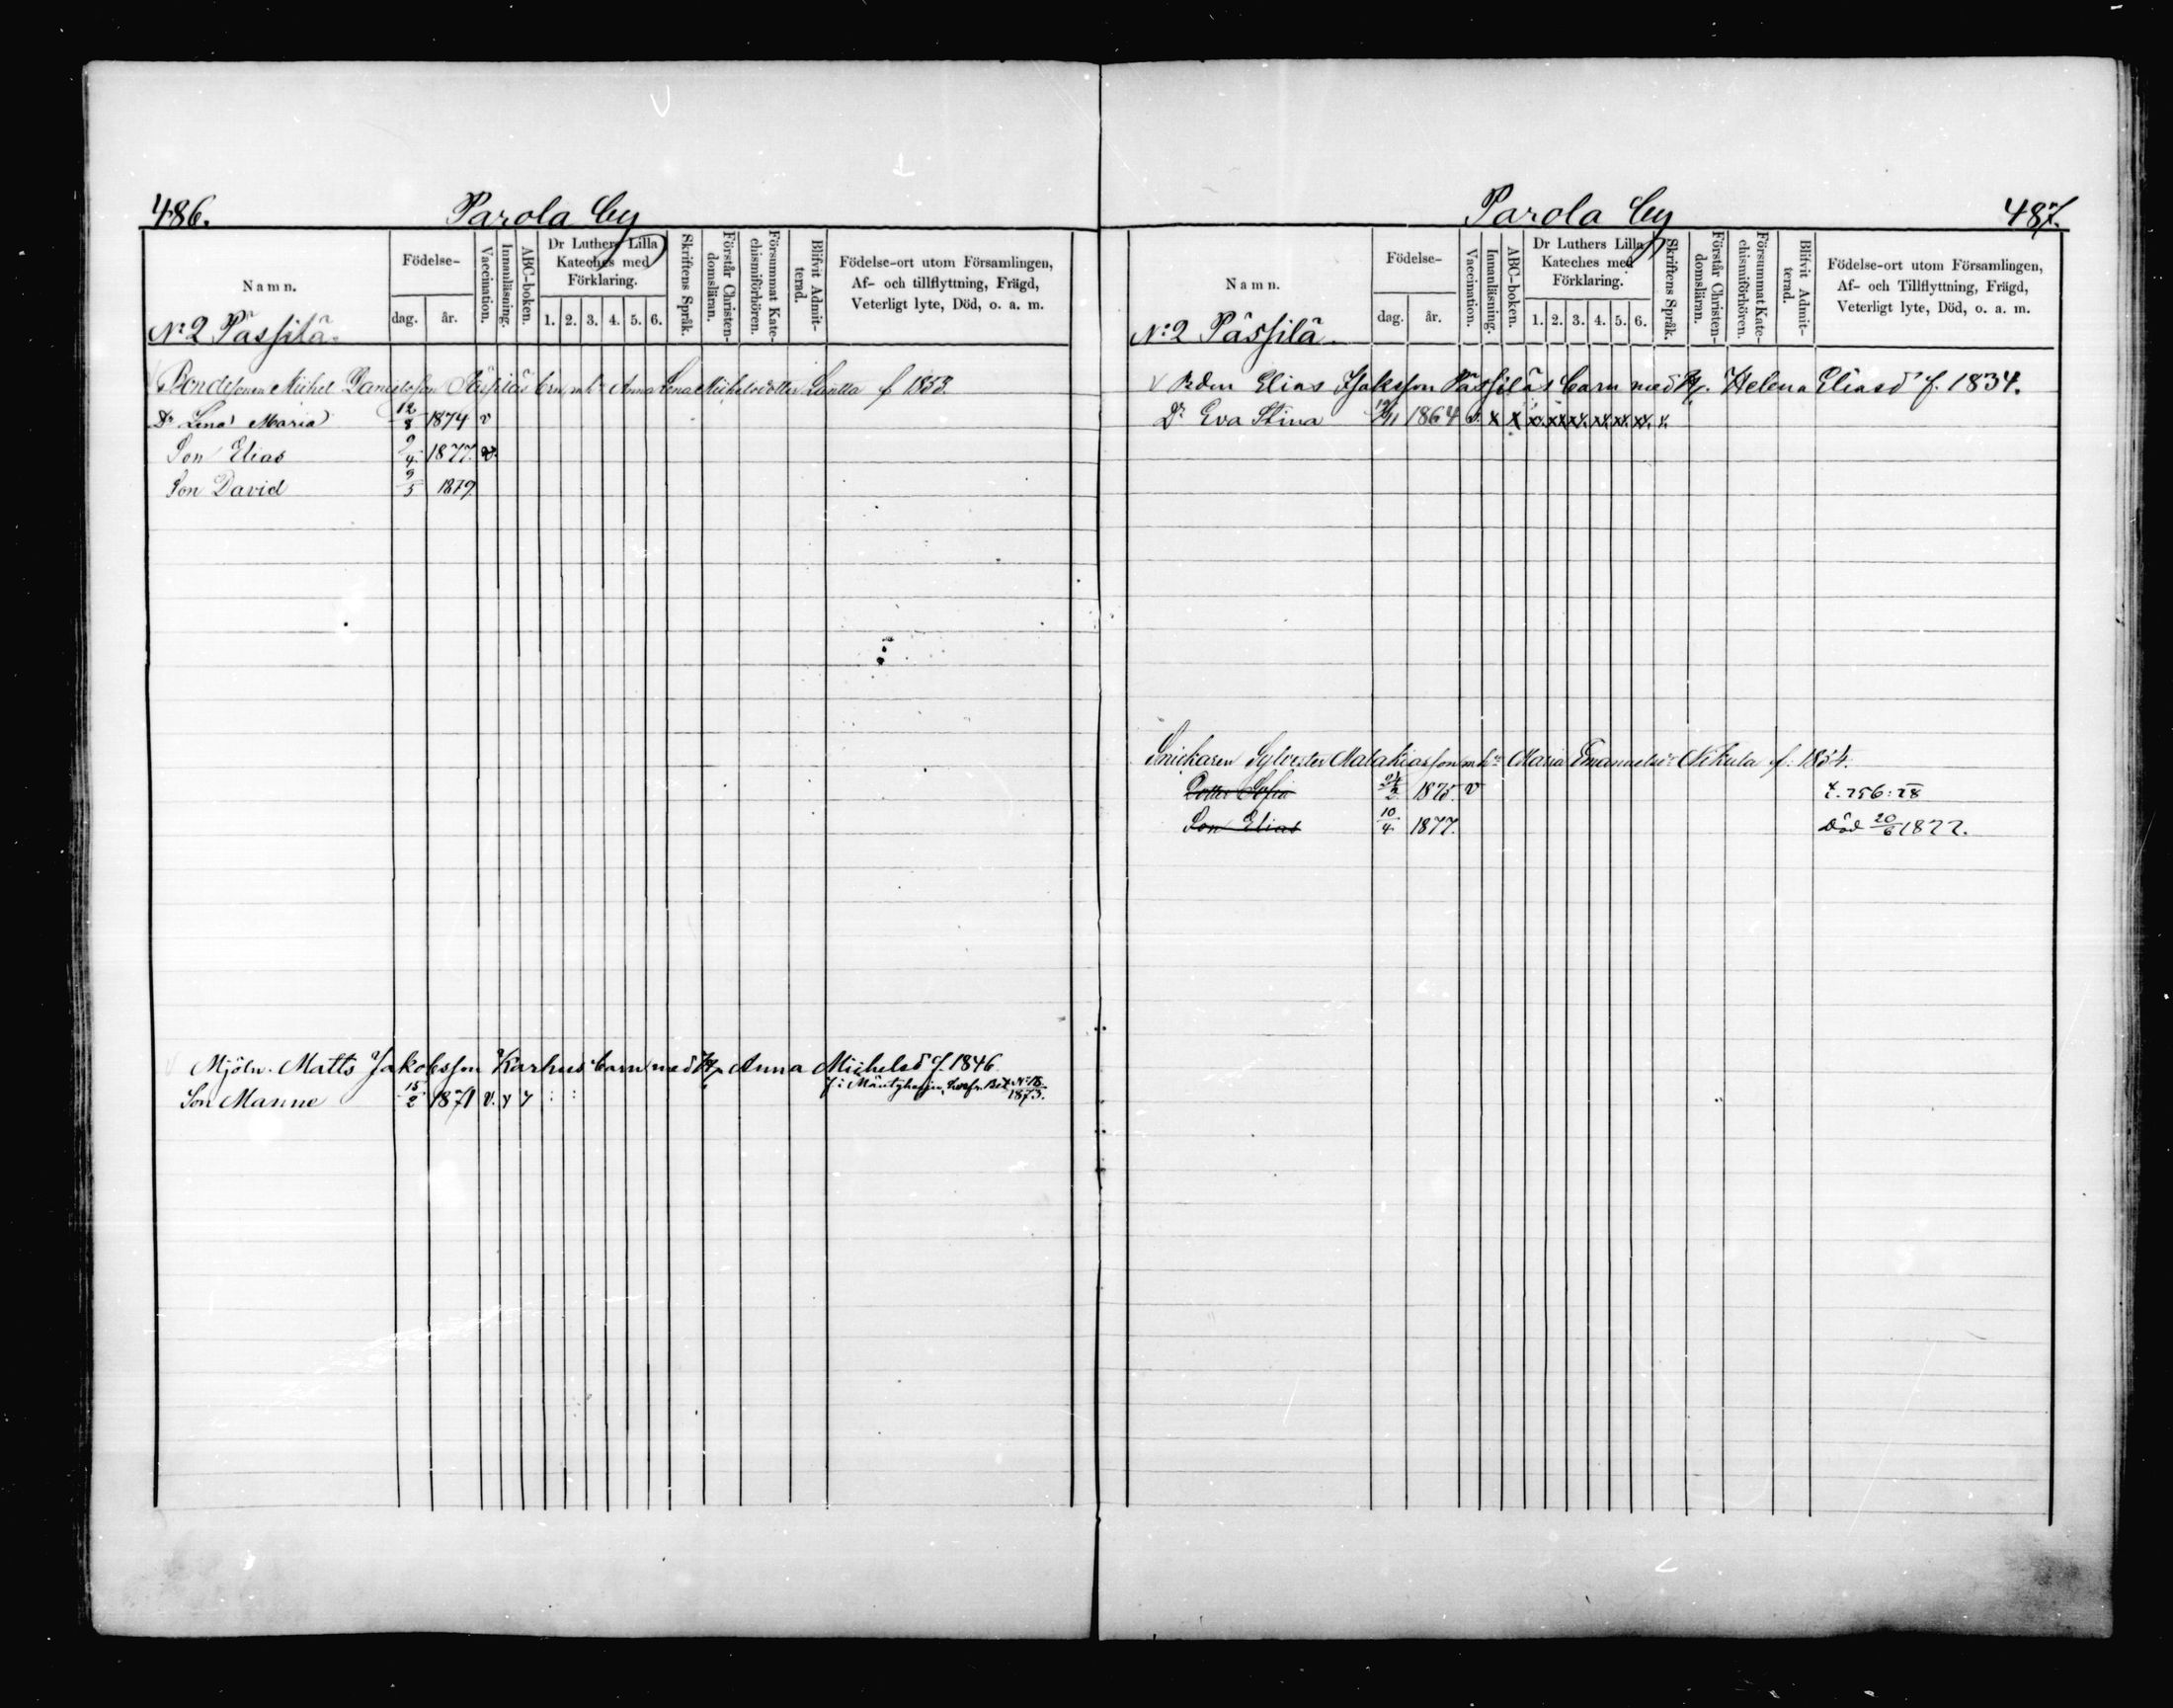 486.
Parola by
Namn.
Födelse-
dag.
år.
Vaccination.
Innanläsning.
ABC-boken.
Dr Luthers Lilla
Kateches med
Förklaring.
1. 2. 3. 4. 5. 6.
Skriftens Språk.
Förstår Christen-
domsläran.
Försummat Kate-
chismiförhören.
Blifvit Admit-
terad.
Födelse-ort utom Församlingen,
Af- och tillflyttning, Frägd,
Veterligt lyte, Död, o. a. m.
No: 2 Pässilä.
Bondesonen Michel Danielsson Pässiläs brn mh Anna Lena Michelsdotter f 1853.
Dr Lena Maria 12/8 1874 v
Son Elias 9/4 1877. v.
Son David 9/5 1879
Mjöln. Matts Jakobsson Karhus barn med H. Anna Michelsd. f. 1846
f. i Mäntyharju. Bet. No 18 1873.
Son Manne 15/2 1871 v. y y : :
Parola by
487.
Namn.
Födelse-
dag.
år.
Vaccination.
Innanläsning.
ABC-boken.
Dr Luthers Lilla
Kateches med
Förklaring.
1. 2. 3. 4. 5. 6.
Skriftens Språk.
Förstår Christen-
domsläran.
Försummat Kate-
chismiförhören.
Blifvit Admit-
terad.
Födelse-ort utom Församlingen,
Af- och Tillflyttning, Frägd,
Veterligt lyte, Död, o. a. m.
No: 2 Pässilä.
v Elias Isaksson Pässiläs barn med H. Helena Eliasd f. 1834.
Dr Eva Stina 1864 v. x x
Snickaren Sylvester Malakiasson mhu Maria Emanuelsdr Nikula f. 1854.
Dotter Sofia 24/2 1875. v
Son Elias 10/4. 1877. Död 20/6 1877.